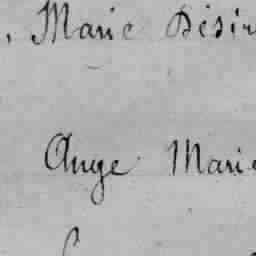 , Marie Désir
Ange Marie